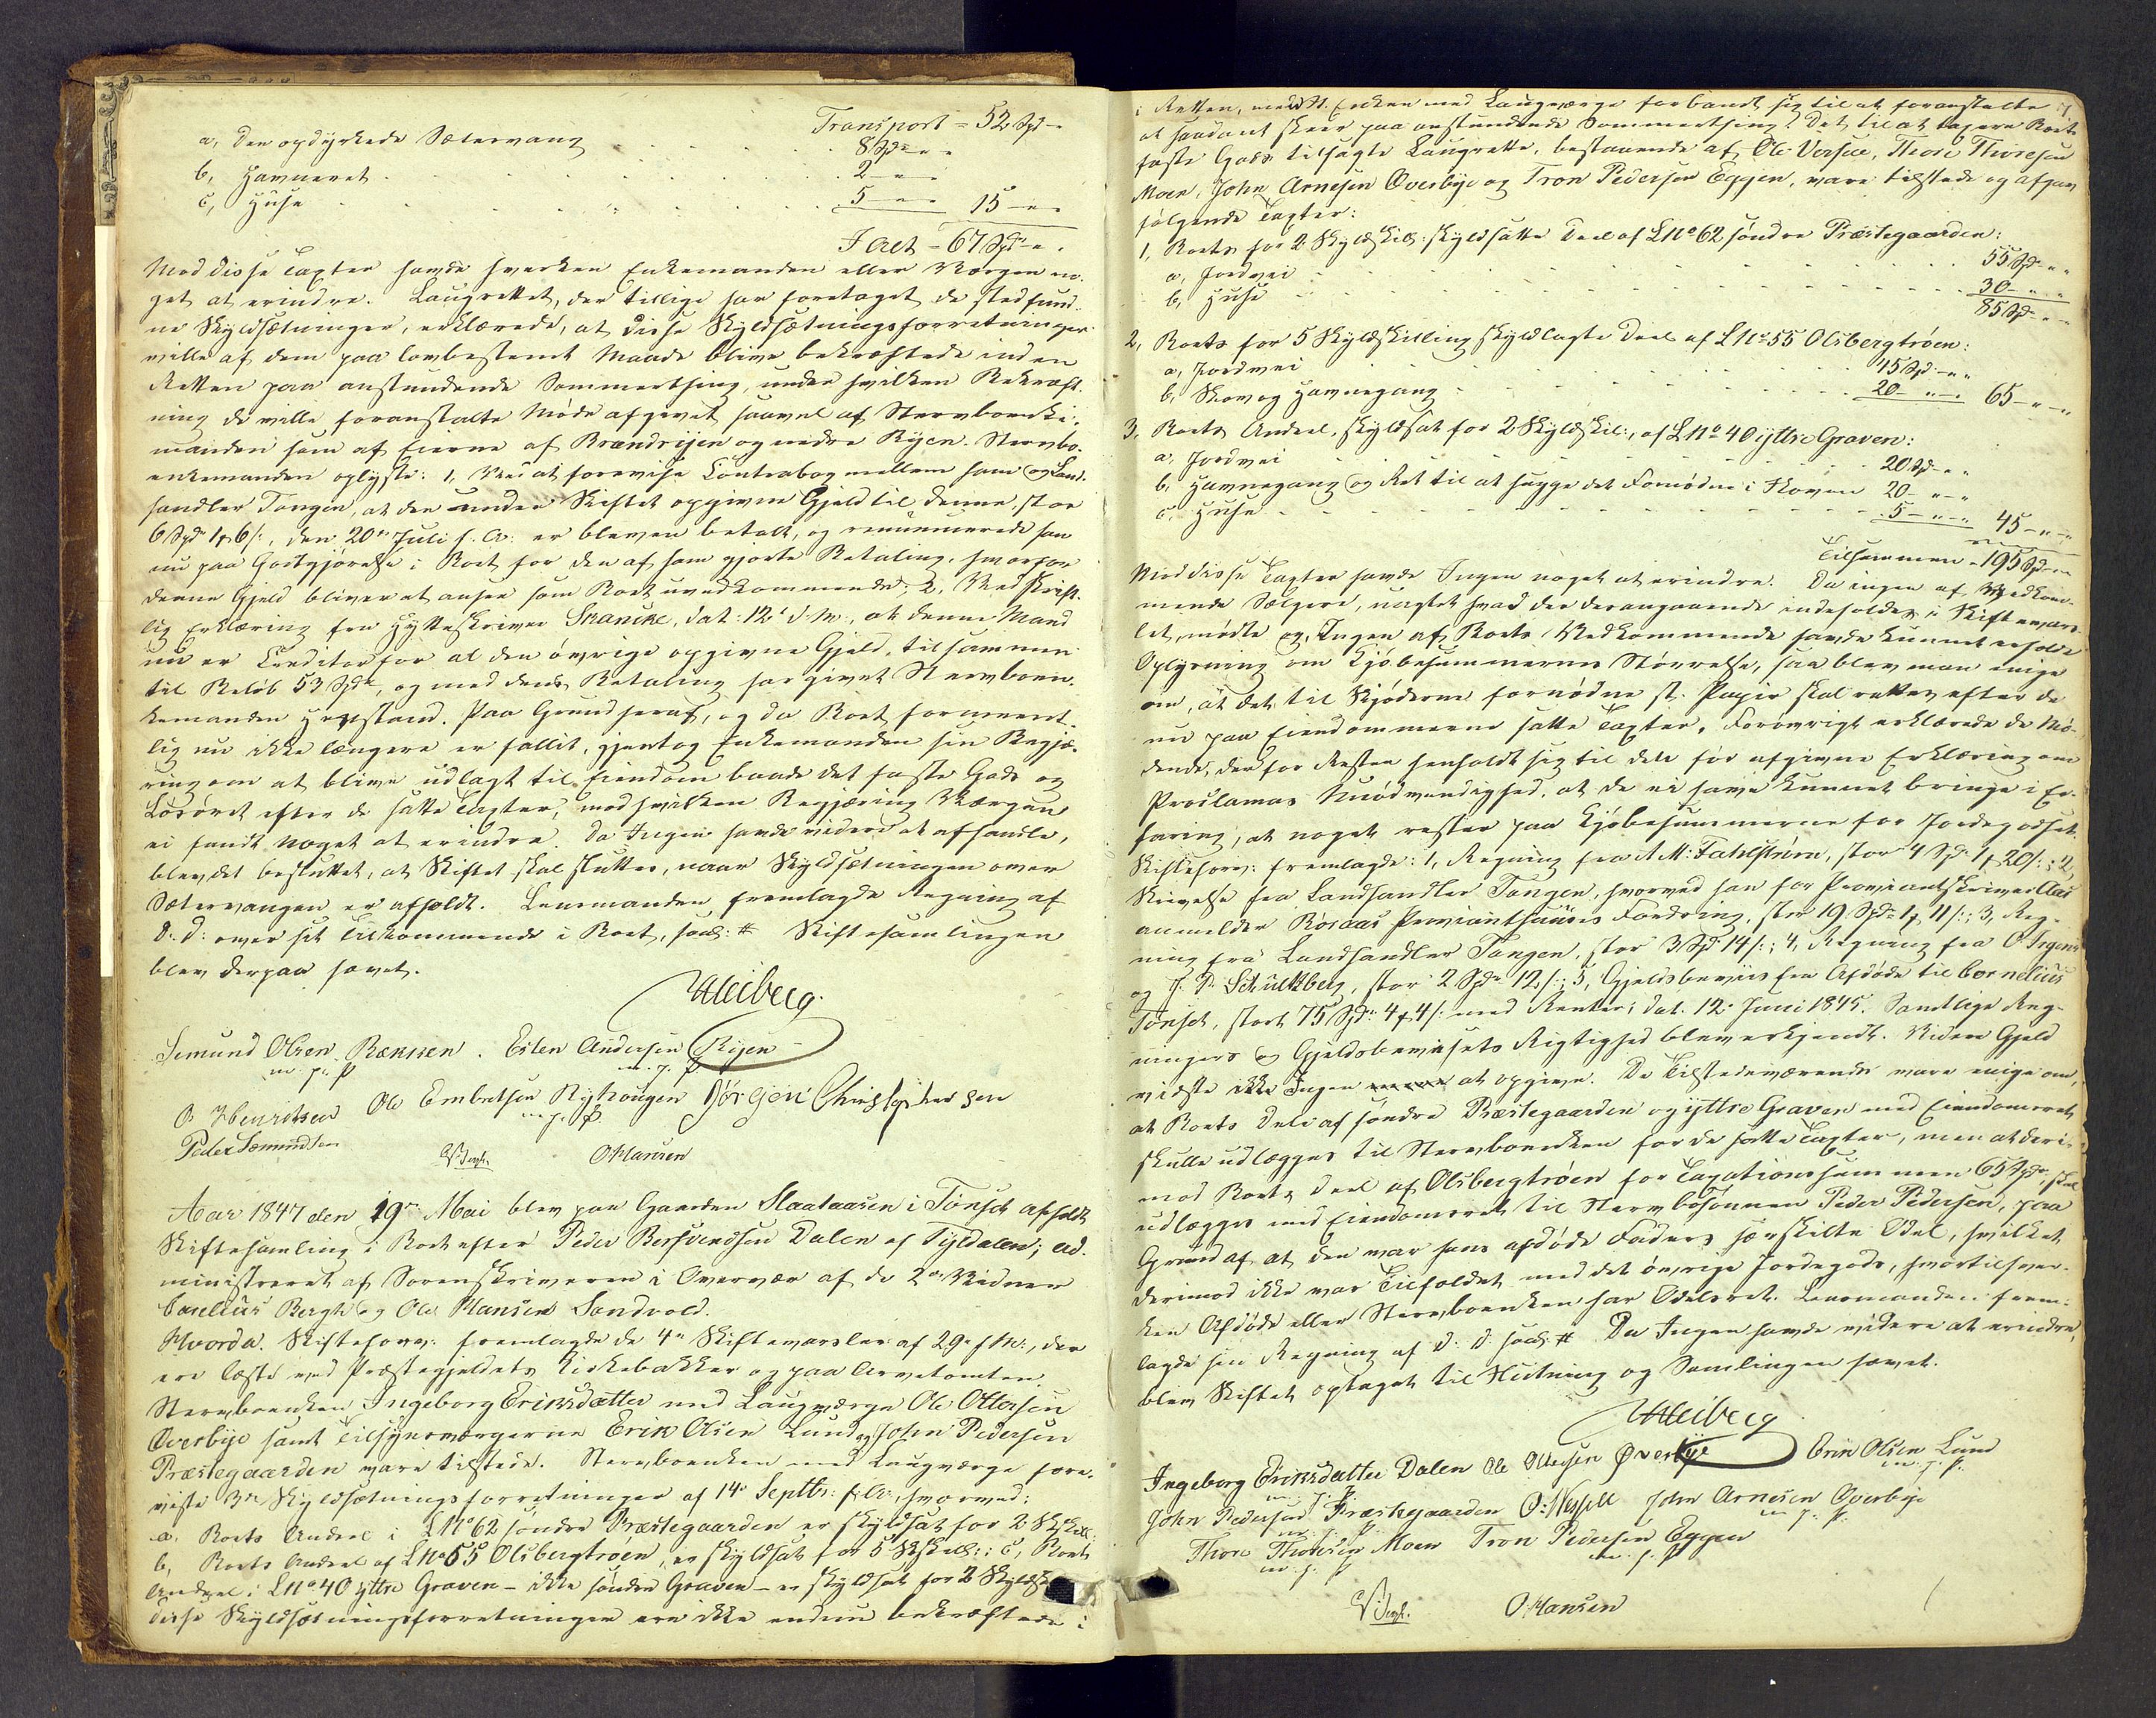 Transport = 52 Spd -
a, den opdyrkede Sætervang . . . . . 8 Spd " "
b, Havneret . . . . . 2 - " -
c, Huse . . . . . 5 - " - 15 - " -
I Alt = 67 Spd " .
Mod disse Taxter havde hverken Enkemanden eller Værgen no-
get at erindre. Laugrettet, der tillige har foretaget de stedfund-
ne Skyldsætninger, erklærede, at disse Skyldsætningsforretninger
ville af dem paa lovbestemt Maade blive bekræftede inden
Retten paa anstundende Sommerthing, under hvilken Bekræft-
ning de ville foranstalte Møde afgivet saavel af Stervboenke-
manden som af Eierne af Brændryen og nedre Ryen. Stervbo-
enkemanden oplyste: 1, Ved at forevise Contrabog mellem ham og Land-
handler Tangen, at den under Skiftet opgivne Gjeld til denne, stor
6 Spd 1 # 6 /:, den 20de Juli f. A. er bleven betalt, og renuncerede han
nu paa Godtgjørelse i Boet for den af ham gjorte Betaling, hvorfor
denne Gjeld bliver at ansee som Boet uvedkommende; 2, Ved Skrift-
lig Erklæring fra Hytteskriver Skancke, dat: 12te d. M., at denne Mand
nu er Creditor for al den øvrige opgivne Gjeld, tilsammen
til Beløb 53 Spd, og med dens Betaling har givet Stervboen-
kemanden Henstand. Paa Grund heraf, og da Boet formeent-
lig nu ikke længere er fallit, gjentog Enkemanden sin Begjæ-
ring om at blive udlagt til Eiendom baade det faste Gods og
Løsøret efter de satte Taxter, mod hvilken Begjæring Værgen
ei fandt noget at erindre. Da Ingen havde videre at afhandle,
blev det besluttet, at Skiftet skal sluttes, naar Skyldsætningen over
Sætervangen er afholdt. Lensmanden fremlagde Regning af
D. D. over sit Tilkommende i Boet, saal: # Skiftesamlingen
blev derpaa hævet.
Meiberg.
Semund Olsen Ræknen . Esten Andersen Ryen
m. p. P. m. p. P.
O Henriksen Ole Embretsen Nyhougen Jørgen Christopherssen
m. p. P.
Peder Sæmundsen
O Hansen
Aar 1847 den 19de Mai blev paa Gaarden Slaataasen i Tønset afholdt
Skiftesamling i Boet efter Peder Bersvendsen Dalen af Tyldalen; ad-
ministreret af Sorenskriveren i Overvær af de 2de Vidner
Carelius Bergh og Ole Hansen Sandvold.
Hvorda. Skifteforv: fremlagde de 4re Skiftevarsler af 29de f. M., der
ere læste ved Præstegjeldets Kirkebakker og paa Arvetomten.
Stervboenken Ingeborg Eriksdatter med Laugværge Ole Ottersen
Øverbye samt Tilsynsværgerne Erik Olsen Lund og John Pedersen
Præstegaarden vare tilstede. Stervboenken med Laugværge fore-
viste 3de Skyldsætningsforretninger af 14de Septbr: f. A., hvorved:
a. Boets Andeel i LNo 62 søndre Præstegaarden er skyldsat for 2 Skskill:
b, Boets Andeel af LNo 55 Olsbergtrøen, er skyldsat for 5 Skskill:; c, Boets
Andeel i LNo 40 yttre Graven - ikke søndre Graven - er skyldsat for 2 Skyldsk
Disse Skyldsætningsforretninger ere ikke endnu bekræftede
i Retten, men St. Enken med Laugværge forbandt sig til at foranstalte
at saadant skeer paa anstundende Sommerthing. Det til at taxere Boets
faste Gods tilsagte Laugrette, bestaaende af Ole Vessel, Thore Thoresen
Moen, John Arnesen Øverbye og Tron Pedersen Eggen, vare tilstede og afgav
følgende Taxter:
1, Boets for 2 Skyldskill: skyldsatte Deel af LNo 62 søndre Præstegaarden:
a, Jordvei . . . . . 55 Spd " "
b, Huse . . . . . 30 - " -
85 Spd " -
2, Boets for 5 Skyldskilling skyldlagte Deel af LNo 55 Olsbergtrøen:
a, Jordvei . . . . . 45 Spd - "
b, Skov og Havnegang . . . . . 20 - " - 65 - " -
3, Boets Andeel, skyldsat for 2 Skyldskil:, af LNo 40 yttre Graven:
a, Jordvei . . . . . 20 Spd - "
b, Havnegang og Ret til at hugge det Fornødne i Skoven 20 - " -
c, Huse . . . . . 5 - " - 45 - " -
Tilsammen = 195 Spd -
Mod disse Taxter havde Ingen noget at erindre. Da ingen af Vedkom-
mende Sælgere, uagtet hvad der derangaaende indeholdes i Skiftevars-
let, mødte og Ingen af Boets Vedkommende havde kunnet erholde
Oplysning om Kjøbesummernes Størrelse, saa blev man enige
om, at det til Skjøderne fornødne st. Papir skal rettes efter de
nu paa Eiendommene satte Taxter. Forøvrigt erklærede de Mø-
dende, der for Resten henholdt sig til dele før afgivne Erklæring om
Proclamas Nødvendighed, at de ei have kunnet bringe i Er-
faring, at noget rester paa Kjøbesummerne for Jordegodset.
Skifteforv: fremlagde: 1, Regning fra A M: Fahlstrøm, stor 4 Spd 1 # 20 /:; 2,
Skrivelse fra Landhandler Tangen, hvorved han for Proviantskriver Aas
anmelder Røraas Provianthuuses Fordring, stor 19 Spd 1 # 11 /:; 3, Reg-
ning fra Landhandler Tangen, stor 3 Spd 14 /:; 4, Regning fra O Trøen
og J. P. Schulkberg, stor 2 Spd 12 /:; 5, Gjeldsbeviis fra Afdøde til Cornelius
Tønset, stort 75 Spd 4 # 4 /: med Renter; dat. 12te Juni 1845. Samtlige Reg-
ningers og Gjeldsbevisets Rigtighed blev erkjendt. Videre Gjeld
vidste ikke Ingen at opgive. De Tilstedeværende vare enige om,
at Boets Dele af søndre Præstegaarden og yttre Graven med Eiendomsret
skulle udlægges til Stervboenken for de satte Taxter, men at deri-
mod Boets Deel af Olsbergtrøen for Taxationssummen 65 Spd, skal
udlægges med Eiendomsret til Stervbosønnen Peder Pedersen, paa
Grund af, at den var hans afdøde Faders særskilte Odel, hvilket
derimod ikke var Tilfældet med det øvrige Jordegods, hvortil hver-
ken Afdøde eller Stervboenken har Odelsret. Lensmanden frem-
lagde sin Regning af D. D. saal: # Da Ingen havde videre at erindre,
blev Skiftet optaget til Slutning og Samlingen hævet.
Meiberg
Ingeborg Eriksdatter Dalen Ole Ottersen Øverbye Erik Olsen Lund
m. p. P. m. p. P.
John Pedersen Præstegaarden O: Vessell John Arnesen Øverbye
m. p. P. m. p. P.
Thore Thoresen Moen Tron Pedersen Eggen
m. p. P. m. p. P.
O. Hansen